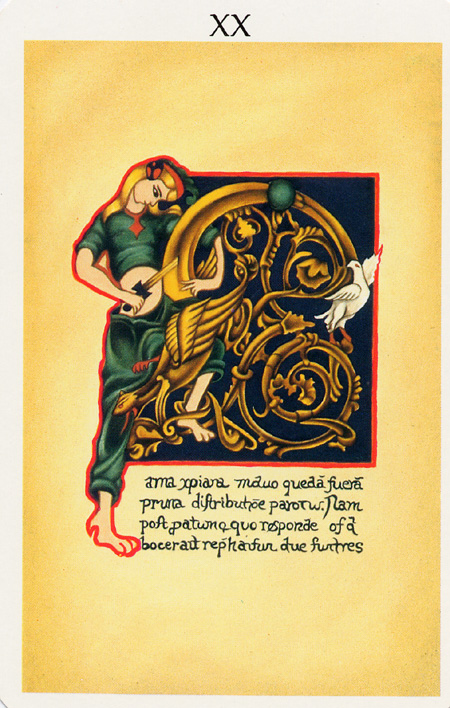 XX
ama xpiana mduo quedã fuerã
pruna distributiõe parotw. Nam
post patunq quo responde of ã
bocerait rephaifun due furtres